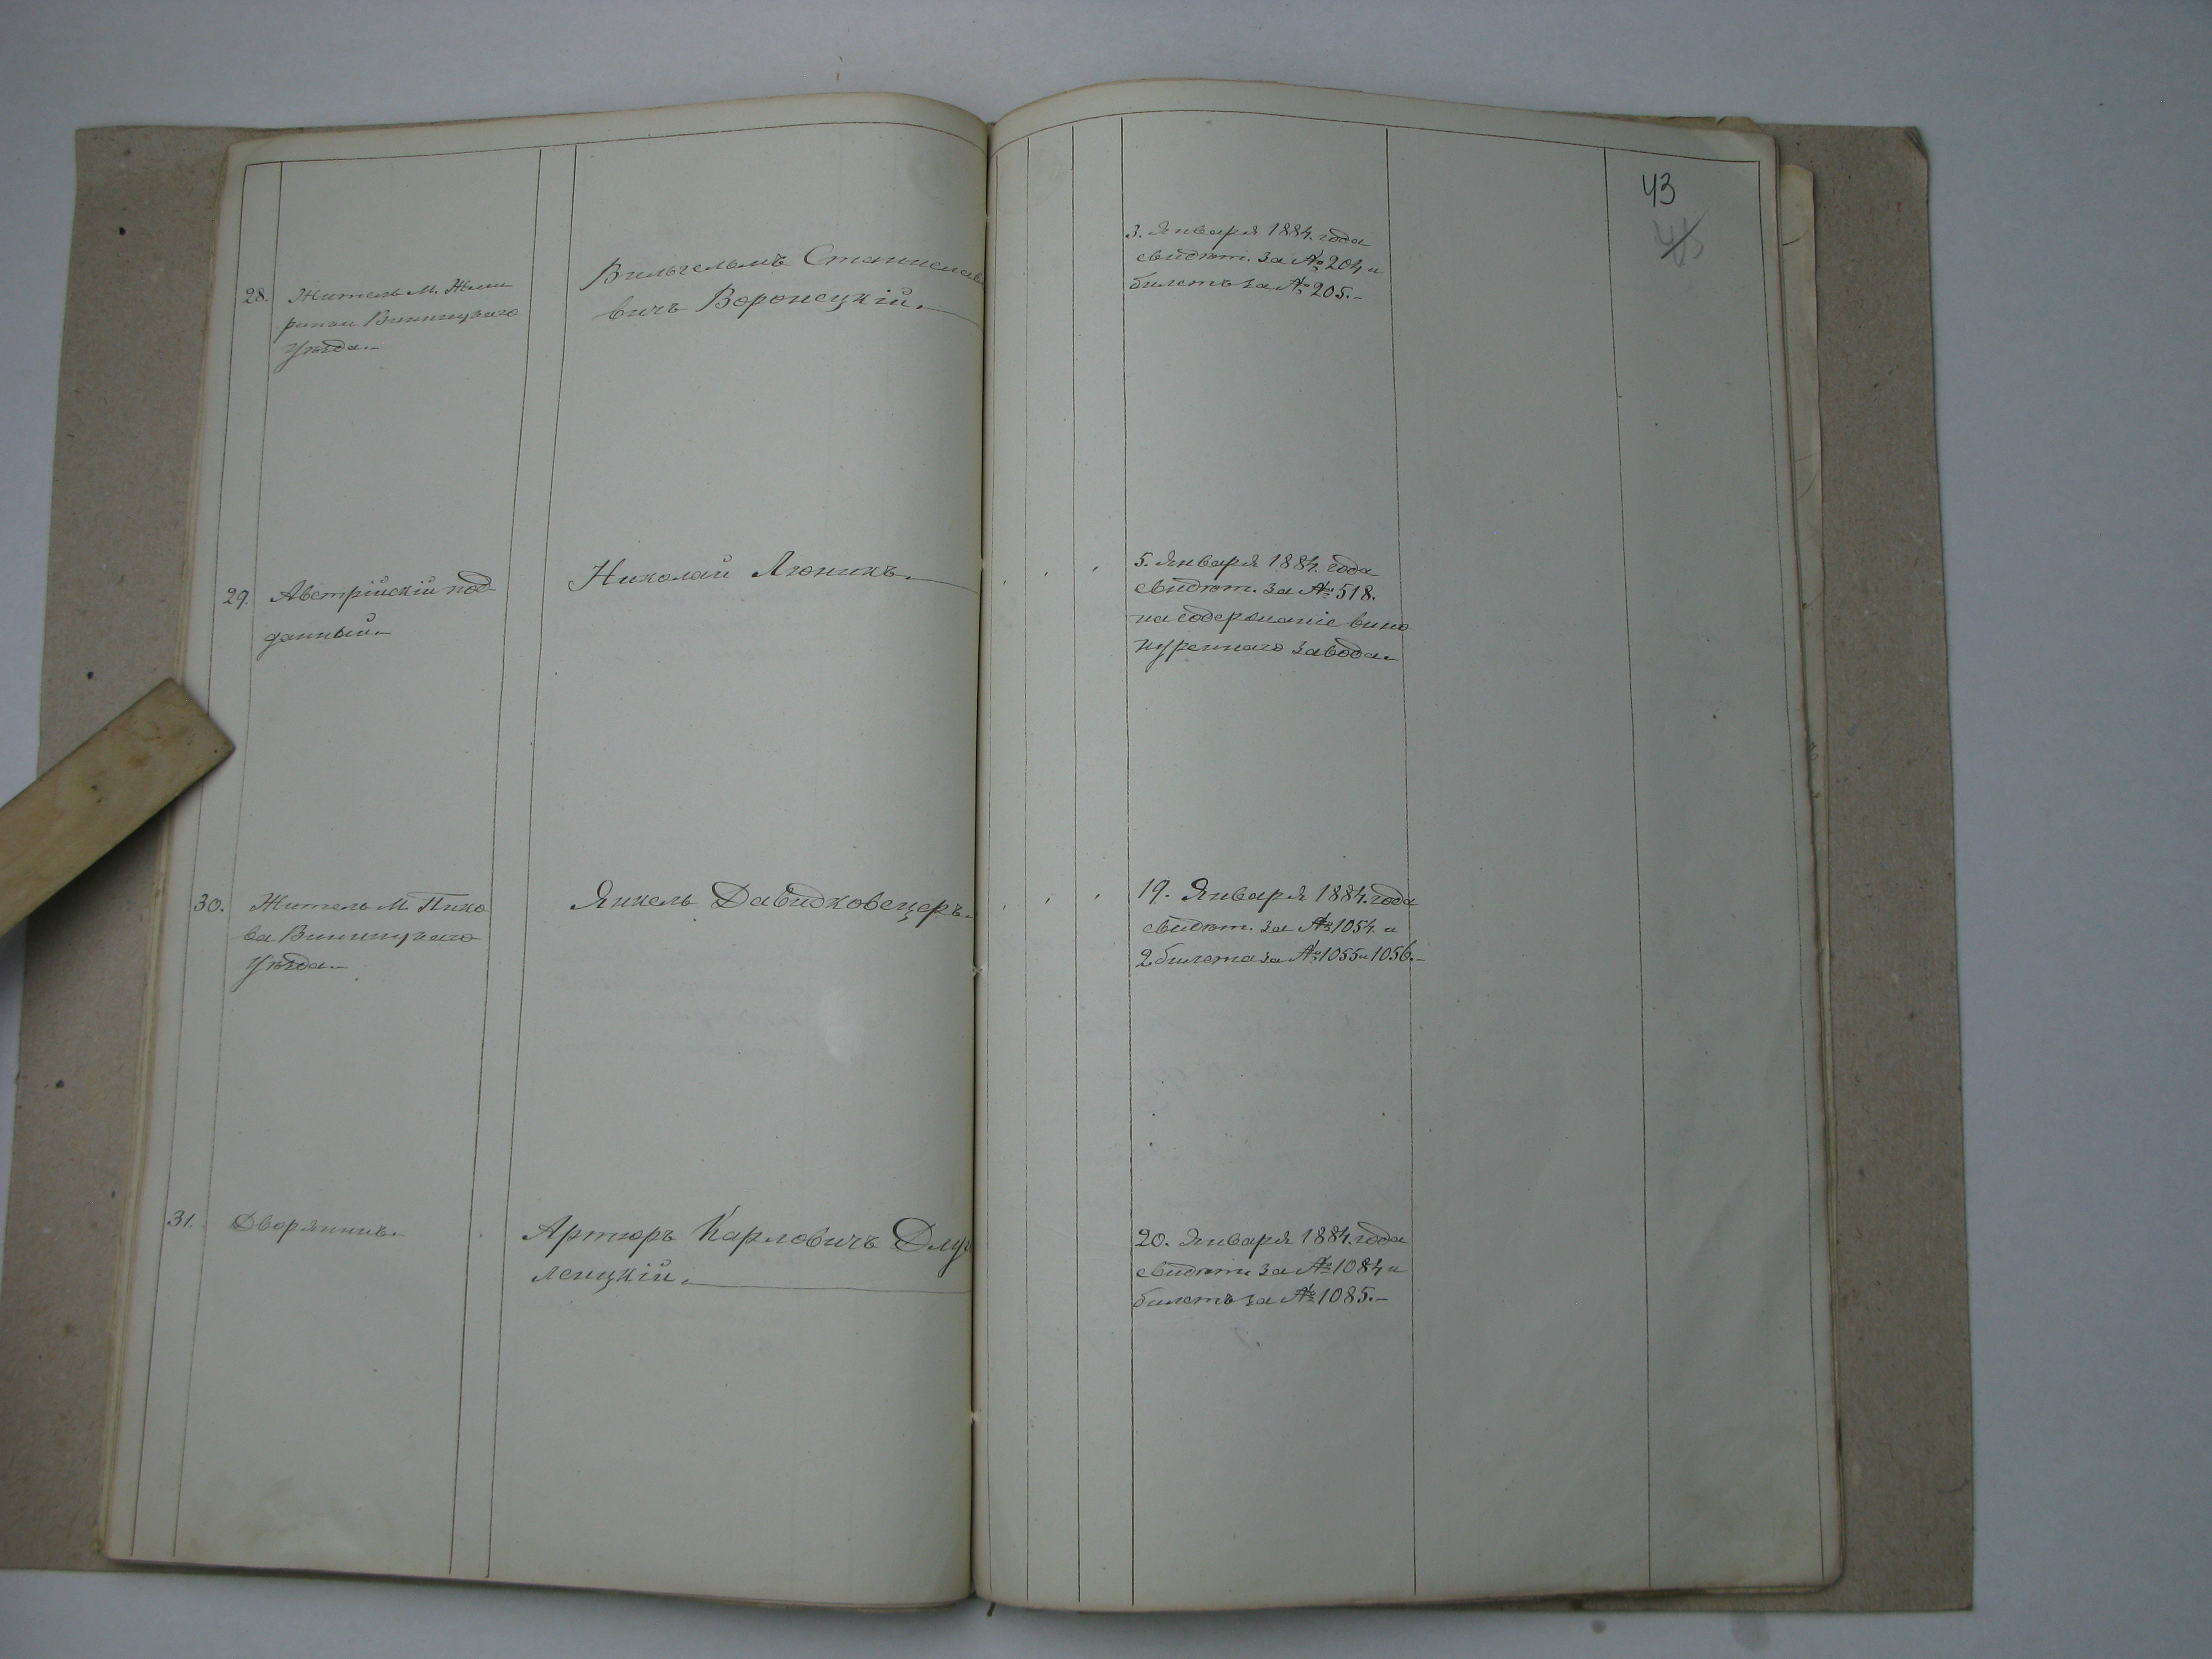 43
45
28. Житель М. Жме
ринки Винницкаго
Уѣзда.-
Вильгельмъ Станислав
вичъ Воронецкій.
3. Января 1884. года
свидѣт. за № 204 и
билетъ за № 205.-
29. Австрійскій под
данный.
Николай Люникъ.
5. Января 1884. года
свидѣт. за № 518.
на содержаніе вино
куреннаго завода.
30. Житель М Пико
ва Винницкаго
Уѣзда.
Янкель Давидковецеръ.
19. Января 1884. года
свидѣт. за № 1054. и
2 билета за № 1055 и 1056.-
31. Дворянинъ.
Артюръ Карловичъ
ленцкій.
20. Января 1884. года
свидѣт. за № 1084 и
билетъ за № 1085.-